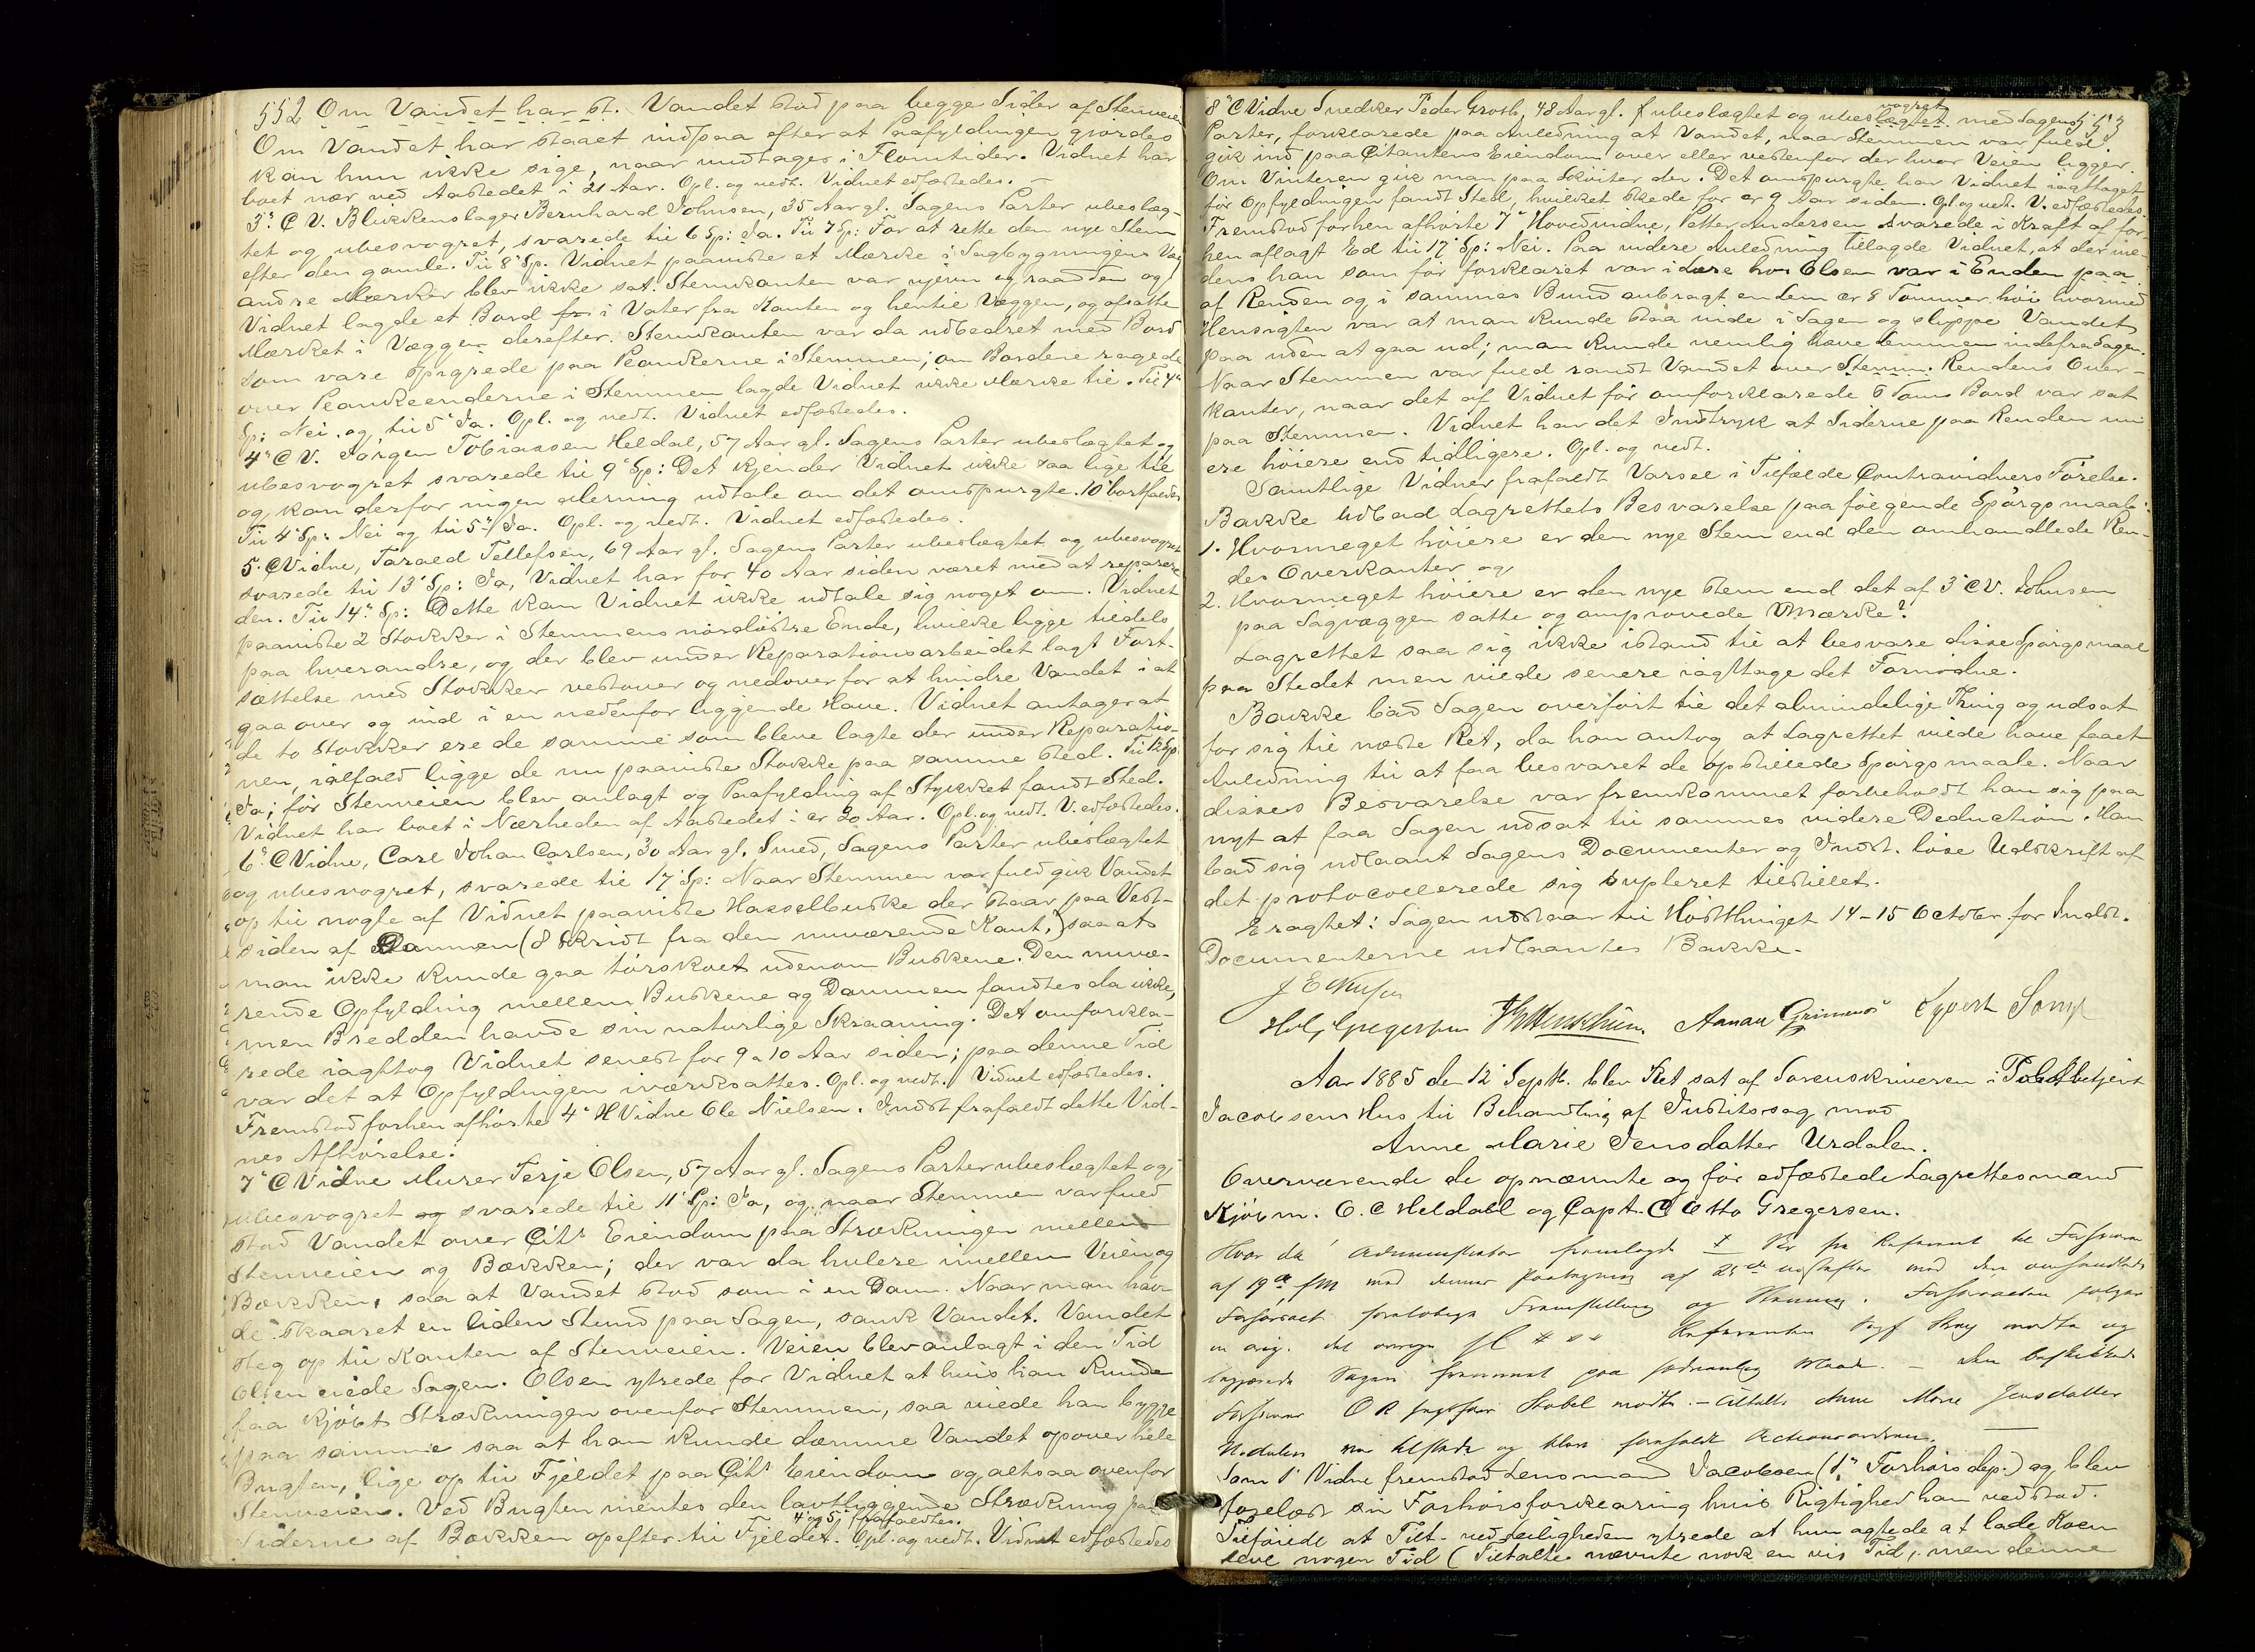 552 Om Vandet har st. Vandet stod paa begge Sider af Stenveien
Om Vandet har staaet indpaa efter at Paafyldningen gjordes
kan hun ikke sige, naar undtages i Flomtider. Vidnet har
boet nær ved Aastedet i 21 Aar. Opl. og vedt. Vidnet edfæstedes. —
3' C V. Blikkenslager Bernhard Johnsen, 35 Aar gl. Sagens Parter ubeslæg-
tet og ubesvogret, svarede til 6 Sp: Ja. Til 7 Sp: For at rette den nye Stem
efter den gamle. Til 8' Sp. Vidnet paaviste et Mærke i Sagbygningens Væg
andre Mærker blev ikke sat. Stemkanten var ujevn og raadden og
Vidnet lagde et Bord fra i Vater fra Kanten og hentil Væggen, og afsatte
Mærket i Væggen derefter. Stemkanten var da udbedret med Bord
som vare spigrede paa Plankerne i Stemmen; om Bordene ragede
over Plankeenderne i Stemmen lagde Vidnet ikke Mærke til. Til 4'
Sp: Nei, og til 5' Ja. Opl. og vedt. Vidnet edfæstedes.
4' C V. Jørgen Tobiassen Heldal, 57 Aar gl. Sagens Parter ubeslægtet og
ubesvogret svarede til 9' Sp: Det kjender Vidnet ikke saa lige til
og kan derfor ingen Mening udtale om det omspurgte. 10' bortfaldt
Til 4' Sp: Nei og til 5' Ja. Opl. og vedt. Vidnet edfæstedes.
5' C Vidne, Tarald Tellefsen, 69 Aar gl. Sagens Parter ubeslægtet og ubesvogret
svarede til 13' Sp: Ja, Vidnet har for 40 Aar siden været med at reparere
den. Til 14' Sp: Dette kan Vidnet ikke udtale sig noget om. Vidnet
paaviste 2 Stokker i Stemmens nordøstre Ende, hvilke ligge tildels
paa hverandre, og der blev under Reparationsarbeidet lagt Fort-
sættelse med Stokker vestover og nedover for at hindre Vandet i at
gaa over og ind i en nedenfor liggende Have. Vidnet antager at
de to Stokker ere de samme som bleve lagte der under Reparatio-
nen, ialfald ligge de nu paaviste Stokke paa samme Sted. Til 12 Sp
Ja; før Stenveien blev anlagt og Paafylding af Stykket fandt Sted.
Vidnet har boet i Nærheden af Aastedet i er 30 Aar. Opl. og vedt. V. edfæstedes.
6' C Vidne, Carl Johan Carlsen, 30 Aar gl. Smed, Sagens Parter ubeslægtet
og ubesvogret, svarede til 17' Sp: Naar Stemmen var fuld gik Vandet
op til nogle af Vidnet paaviste Hasselbuske der staar paa Vest-
siden af Dammen (8 Skridt fra den nuværende Kant,) saa at
man ikke kunde gaa tørskoet udenom Buskene. Den nuvæ-
rende Opfylding mellem Buskene og Dammen fandtes da ikke,
men Bredden havde sin naturlige Skraaning. Det omforkla-
rede iagttog Vidnet senest for 9 a 10 Aar siden; paa denne Tid
var det at Opfyldningen iværksattes. Opl. og vedt. Vidnet edfæstedes.
Fremstod forhen afhørte 4' H Vidne Ole Nielsen. Indst frafaldt dette Vid-
nes Afhørelse.
7' C Vidne Murer Terje Olsen, 57 Aar gl. Sagens Parter ubeslægtet og
ubesvogret og svarede til 11' Sp: Ja, og naar Stemmen var fuld
stod Vandet over Citts Eiendom paa Strækningen mellem
Stenveien og Bækken; der var da hulere imellem Veien og
Bækken, saa at Vandet stod som i en Dam. Naar man hav-
de skaaret en liden Stund paa Sagen, sank Vandet. Vandet
steg op til Kanten af Stenveien. Veien blev anlagt i den Tid
Olsen eiede Sagen. Olsen ytrede for Vidnet at hvis han kunde
faa kjøbt Strækningen ovenfor Stemmen, saa vilde han bygge
paa samme saa at han kunde dæmme Vandet op over hele
Bugten, lige op til Fjeldet paa Citts Eiendom og altsaa ovenfor
Stenveien. Ved Bugten mentes den lavtliggende Strækning paa
4 og 5 Sp. frafaldtes.
Siderne af Bækken opefter til Fjeldet. Opl. og vedt. Vidnet edfæstedes
553
8' C Vidne Snedker Peder Groth, 48 Aar gl. ubeslægtet og ubesvogret med Sagens
Parter, forklarede paa Anledning at Vandet, naar Stemmen var fuld,
gik ind paa Citantens Eiendom over eller vestenfor der hvor Veien ligger.
Om Vinteren gik man paa Skøiter der. Det omspurgte har Vidnet iagttaget
før Opfyldningen fandt Sted, hvilket skede for er 9 Aar siden. Opl. og vedt. V. edfæstedes.
Fremstod forhen afhørte 7' Hovedvidne, Petter Andersen svarede i Kraft af for-
hen aflagt Ed til 17' Sp: Nei. Paa videre Anledning tillagde Vidnet, at der me-
dens han som før forklaret var i Lære hos Olsen var i Enden paa
af Renden og i sammes Bund anbragt en Lem er 8 Tommer høi hvormed
Hensigten var at man kunde staa inde i Sagen og slippe Vandet
paa uden at gaa ud; man kunde nemlig hæve Lemmen indefra Sagen.
Naar Stemmen var fuld randt Vandet over Stemm. Rendens Over-
kanter, naar det af Vidnet før omforklarede 6 Toms Bord var sat
paa Stemmen. Vidnet har det Indtryk at Siderne paa Renden nu
ere høiere end tidligere. Opl. og vedt.
Samtlige Vidner frafaldt Varsel i Tilfælde Contravidners Førelse.
Bakke udbad Lagrettets Besvarelse paa følgende Spørgsmaal:
1. Hvormeget høiere er den nye Stem end den omhandlede Ren-
des Overkanter og
2. Hvormeget høiere er den nye Stem end det af 3' C V. Johnsen
paa Sagvæggen satte og omprovede Mærke?
Lagrettet saa sig ikke istand til at besvare disse Spørgsmaal
paa Stedet men vilde senere iagttage det Fornødne.
Bakke bad Sagen overført til det almindelige Thing og udsat
for sig til næste Ret, da han antog at Lagrettet vilde have faaet
Anledning til at faa besvaret de opstillede Spørgsmaale. Naar
dissers Besvarelse var fremkommet forbeholdt han sig paa
nyt at faa Sagen udsat til sammes videre Deduction. Han
bad sig udlaant Sagens Documenter og Indst. løse Udskrift af
det protocollerede sig supleret tilstillet.
Eragtet: Sagen udstaar til Høstthinget 14-15 October for Indst.
Documenterne udlaantes Bakke.
Holg Gregersen Aanon Grimenæs
Aar 1885 den 12' Septb. blev Ret sat af Sorenskriveren i Politibetjent
Jacobsens Hus til Behandling af Justitssag mod
Anne Marie Jensdatter Urdalen.
Overværende de opnævnte og før edfæstede Lagrettesmænd
Kjøbm. O. C Heldahl og Capt. C Otto Gregersen.
Hvor da Administrator fremlagde
af 19de f.M. med dennes Paategning af 25de
Forsvaret foreløbige Fremstilling og
begjærede Sagen fremmet paa sædvanlig Maade. — Den beskikkede
Forsvarer O R Sagfører Stabel mødte. — Tiltalte Anne Marie Jensdatter
Urdalen var tilstede
Som 1' Vidne fremstod Lensmand Jacobsen (1' Forhørs dep.) og blev
forelæst sin Forhørsforklaring hvis Rigtighed han vedstod.
Tilføiede at Tilt. ved Leiligheden ytrede at hun agtede at lade Koen
leve nogen Tid (Tiltalte nævnte nok en vis Tid, men denne